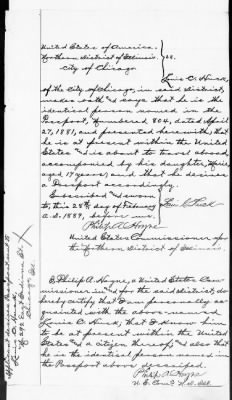 United States of America.
Northern District of Illinois. } ss.
City of Chicago
Louis C. Huck,
of the City of Chicago, in said District,
makes oath and says that he is the
identical person named in the
Passport, Numbered 804, dated April
27, 1881, and presented herewith, that
he is at present within the United
States and is about to travel abroad,
accompanied by his daughter,
aged 17 years; and that he desires
a Passport accordingly.
Subscribed and sworn
to, this 28th day of February
A.D. 1889, before me. Louis C. Huck
Philip A. Hoyne
United States Commissioner for
the Northern District of Illinois.
I, Philip A. Hoyne, a United States Com-
missioner in and for the said District, do
hereby certify that I am personally ac-
quainted with the above-named
Louis C. Huck, that I know him
to be at present within the United
States and a citizen thereof; and also that
he is the identical person named in
the Passport above described.
Philip A. Hoyne
U.S. Com'r N.D. Ill.
Applicant desires Passport sent to
Louis C. Huck
No. 292 East Indiana St.
Chicago Ill.